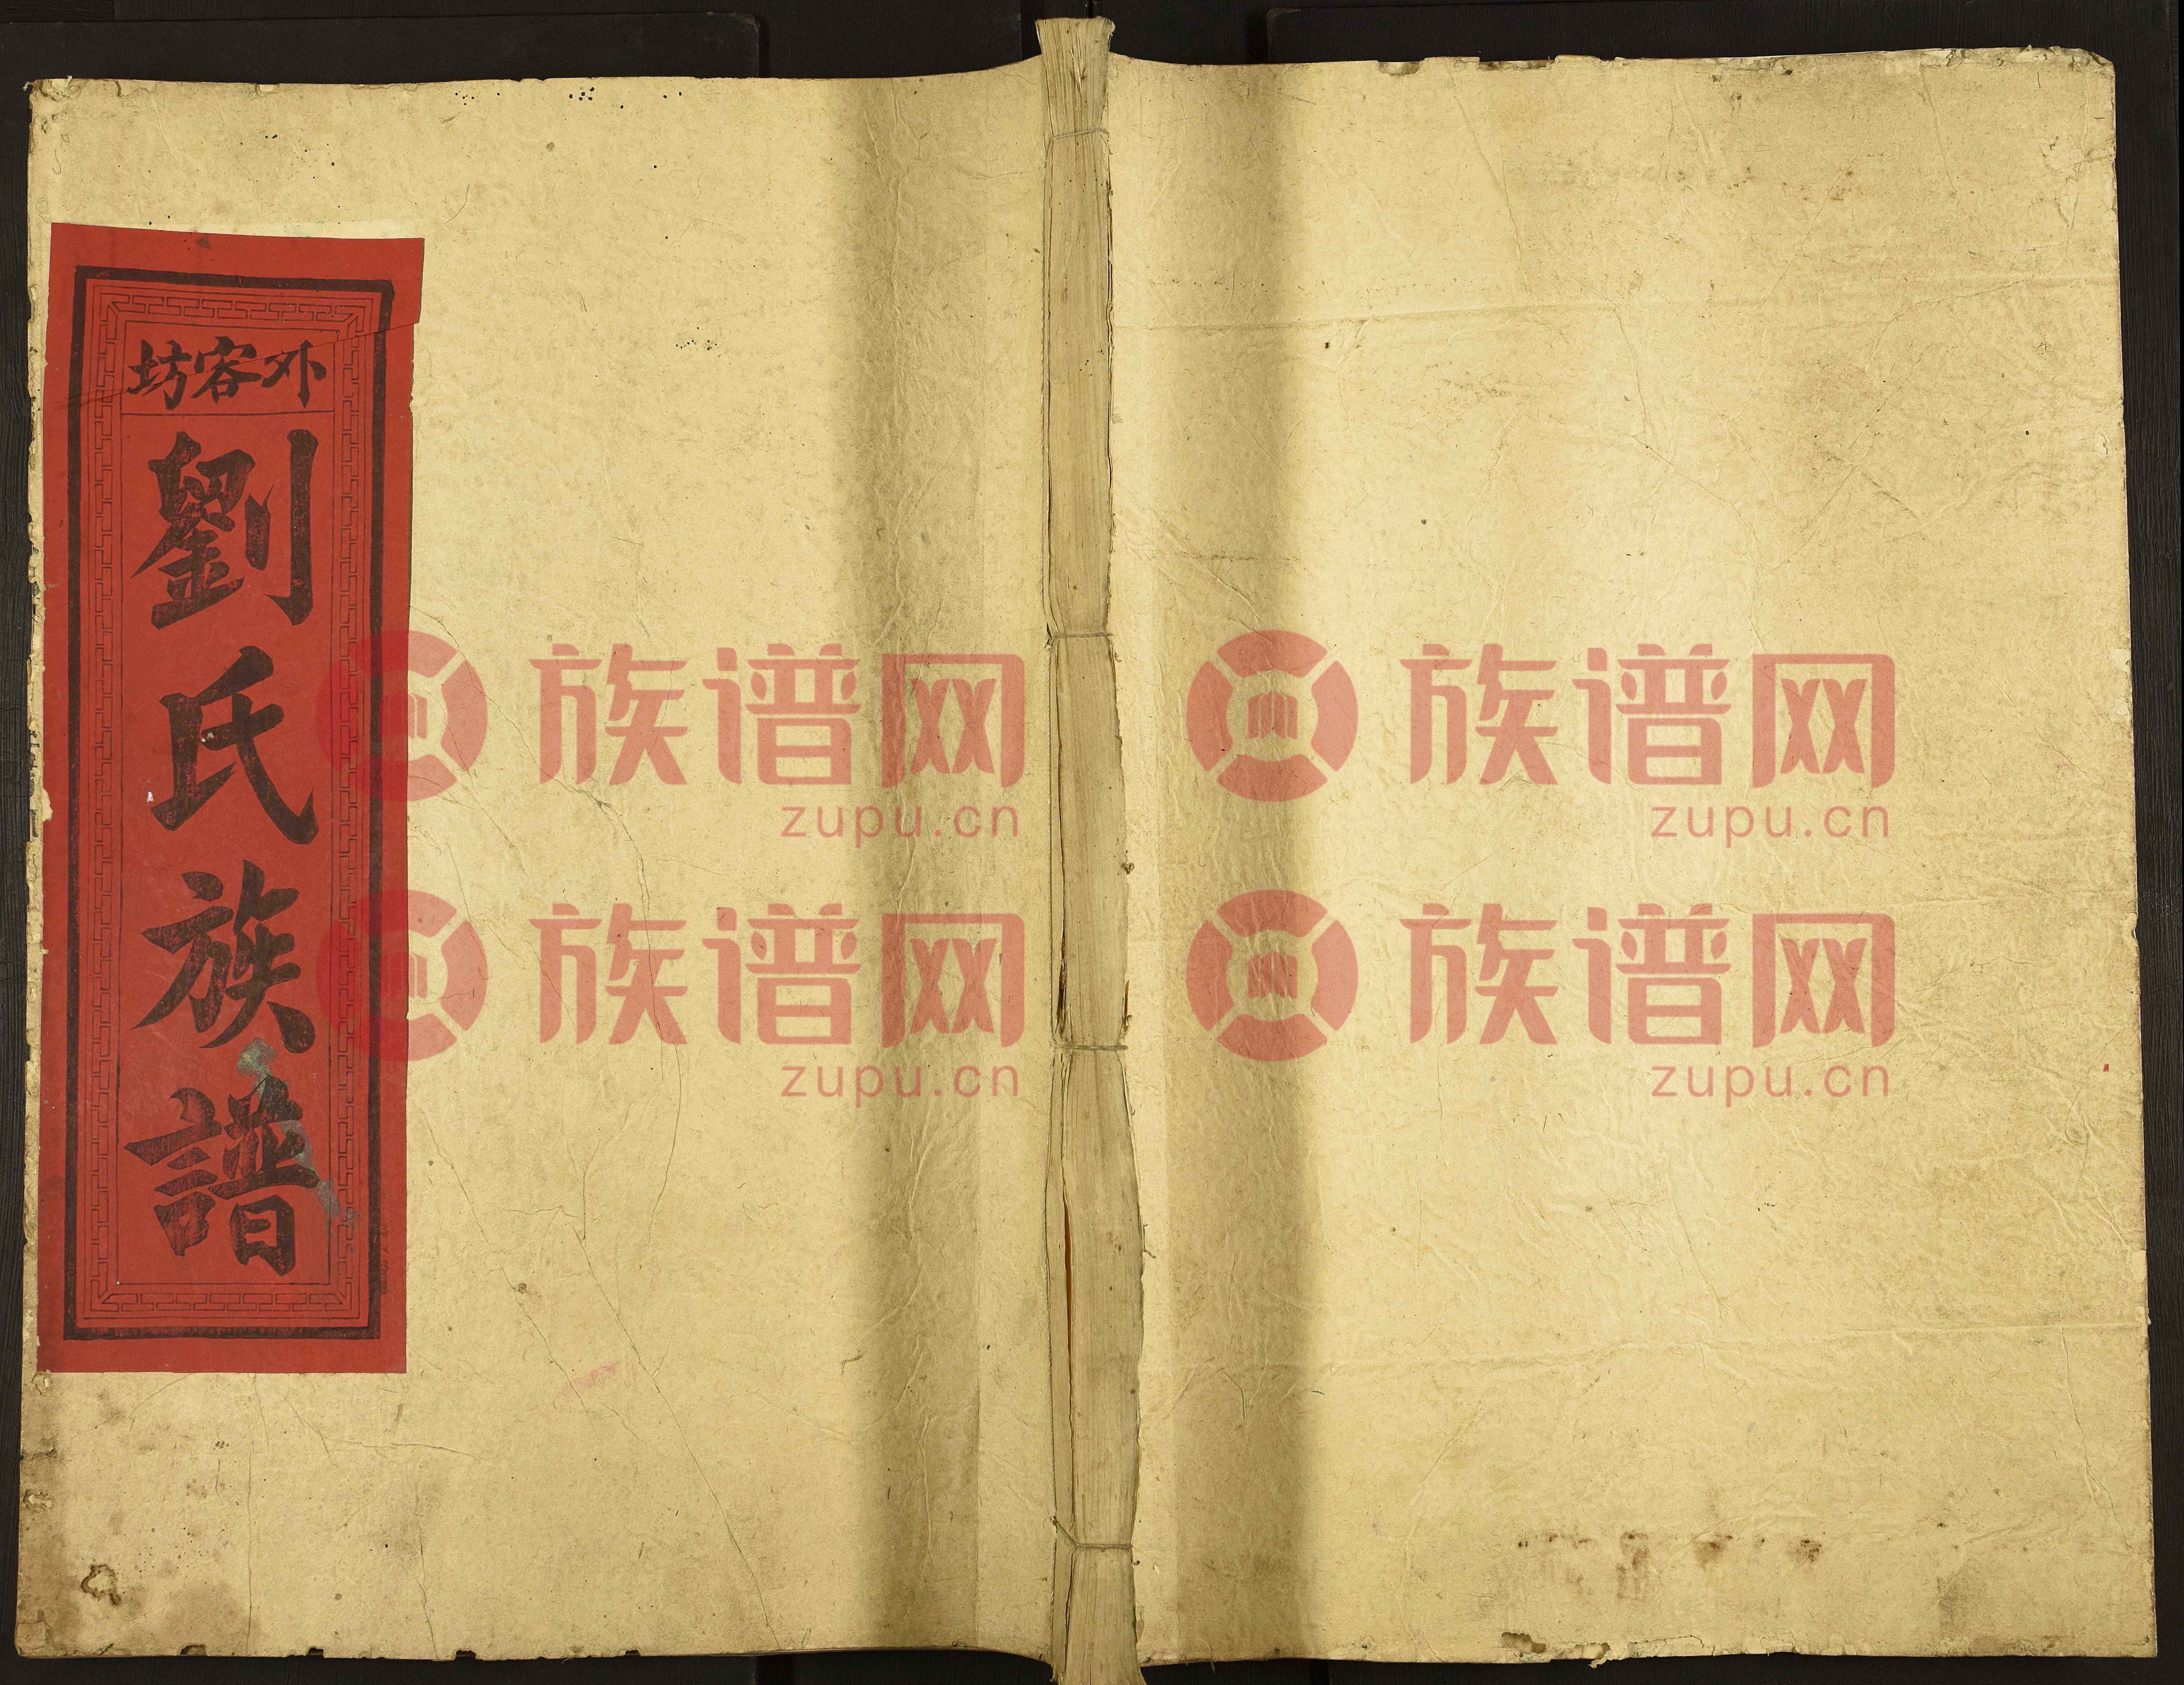 外容坊
劉氏族譜
族谱网
zupu.cn
族谱网
zupu.cn
族谱网
zupu.cn
族谱网
zupu.cn